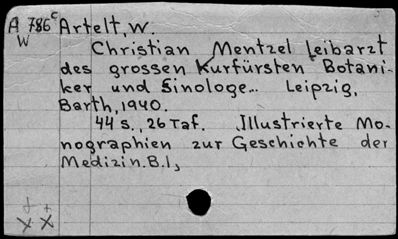 A 786c Artelt, W.
W
Christian Mentzel Leibarzt
des grossen Kurfürsten Botani-
ker und Sinologe... Leipzig,
Barth, 1940.
44 S., 26 Taf. Illustrierte Mo-
nographien zur Geschichte der
Medizin. B. 1,